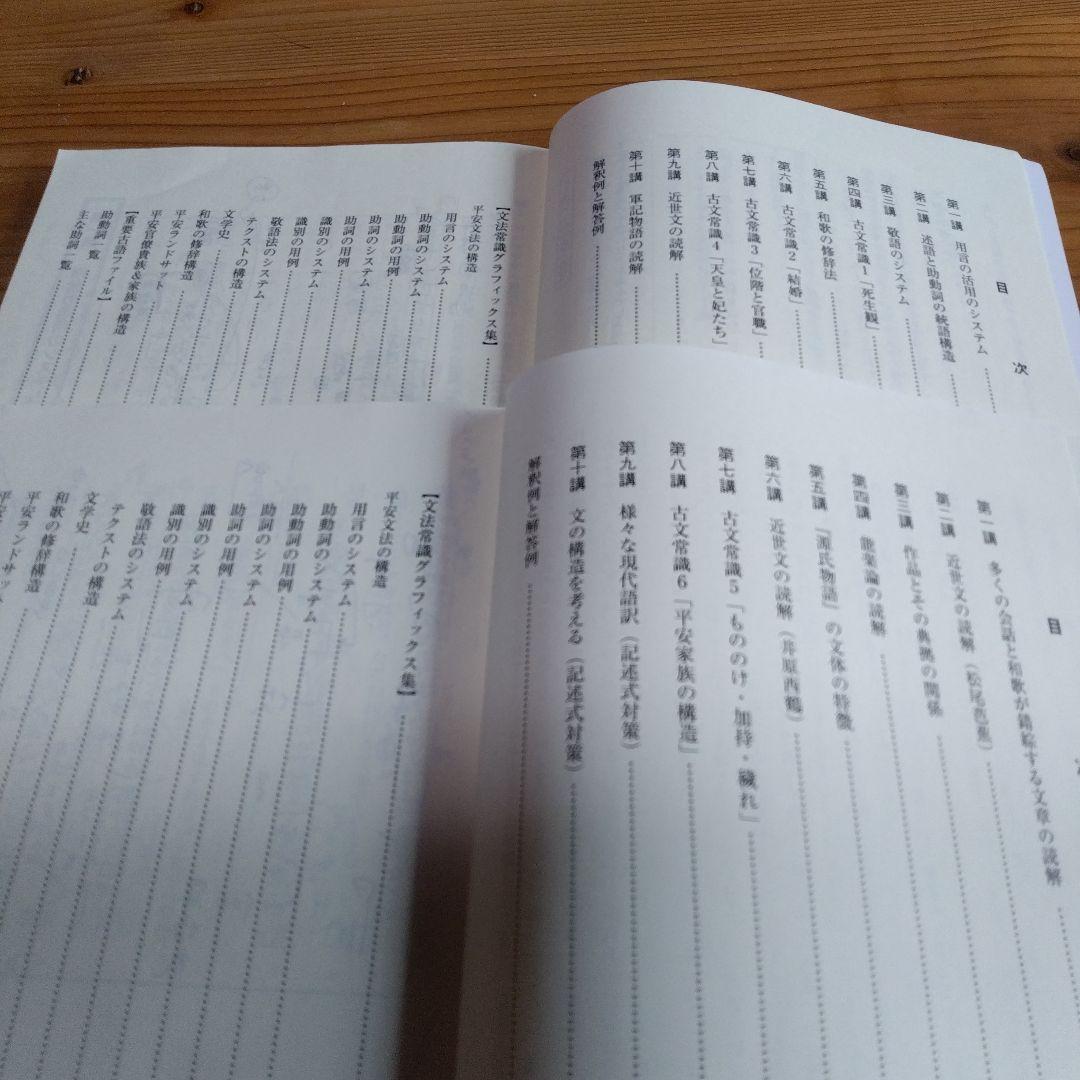 目　次
第一講　用言の活用のシステム
第二講　述語と助動詞の統語構造
第三講　敬語のシステム
第四講　古文常識1「死生観」
第五講　和歌の修辞法
第六講　古文常識2「結婚」
第七講　古文常識3「位階と官職」
第八講　古文常識4「天皇と妃たち」
第九講　近世文の読解
第十講　軍記物語の読解
解釈例と解答例
【文法常識グラフィックス集】
平安文法の構造
用言のシステム
助動詞のシステム
助動詞の用例
助詞のシステム
助詞の用例
識別のシステム
識別の用例
敬語法のシステム
テクストの構造
文学史
和歌の修辞構造
平安ランドサット
平安官僚貴族&家族の構造
【重要古語ファイル】
助動詞一覧
主な助詞一覧
目　次
第一講　多くの会話と和歌が錯綜する文章の読解
第二講　近世文の読解（松尾芭蕉）
第三講　作品とその典拠の関係
第四講　能楽論の読解
第五講　『源氏物語』の文体の特徴
第六講　近世文の読解（井原西鶴）
第七講　古文常識5「もののけ・加持・穢れ」
第八講　古文常識6「平安家族の構造」
第九講　様々な現代語訳（記述式対策）
第十講　文の構造を考える（記述式対策）
解釈例と解答例
【文法常識グラフィックス集】
平安文法の構造
用言のシステム
助動詞のシステム
助動詞の用例
助詞のシステム
助詞の用例
識別のシステム
識別の用例
敬語法のシステム
テクストの構造
文学史
和歌の修辞構造
平安ランドサッ